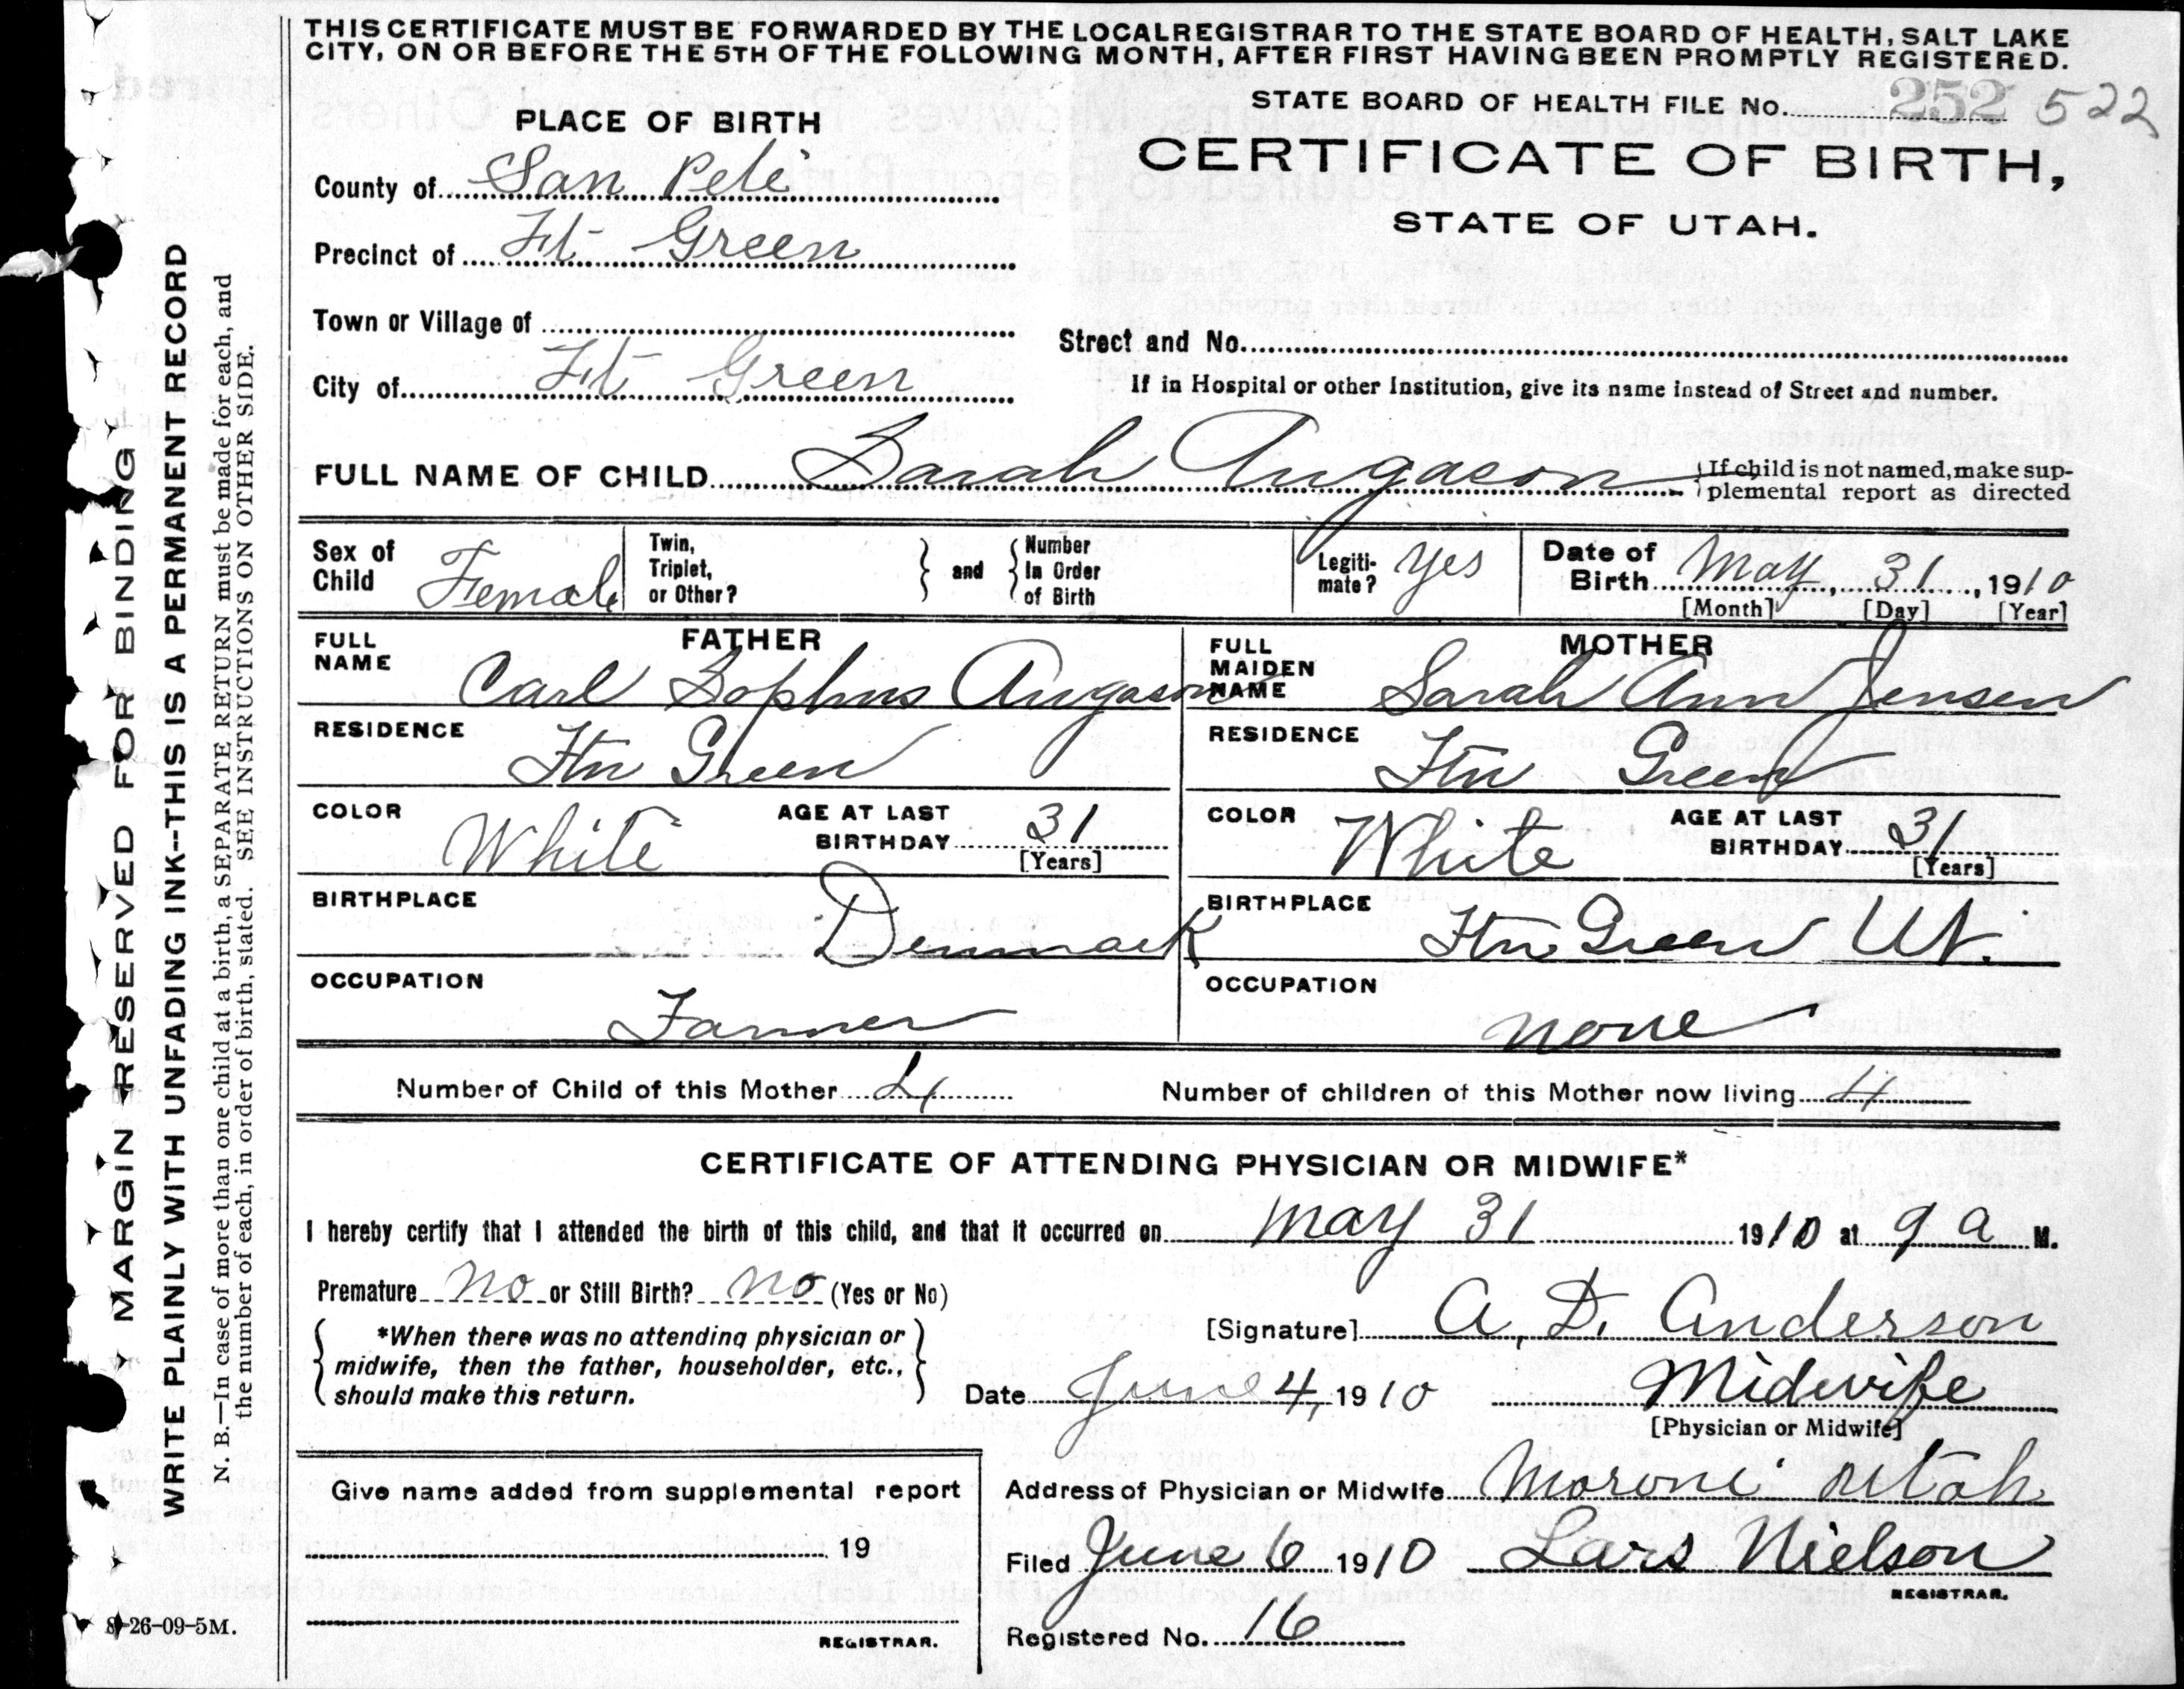 THIS CERTIFICATE MUST BE FORWARDED BY THE LOCAL REGISTRAR TO THE STATE BOARD OF HEALTH, SALT LAKE
CITY, ON OR BEFORE THE 5TH OF THE FOLLOWING MONTH, AFTER FIRST HAVING BEEN PROMPTLY REGISTERED.
STATE BOARD OF HEALTH FILE No. 252 522
PLACE OF BIRTH
CERTIFICATE OF BIRTH,
STATE OF UTAH.
County of San Pete
Precinct of Ft Green
Town or Village of
Street and No.
City of Ft Green
If in Hospital or other Institution, give its name instead of Street and number.
FULL NAME OF CHILD Sarah Augason
{If child is not named, make sup-
plemental report as directed
Sex of Child Female
Twin, Triplet, or Other? } and { Number In Order of Birth
Legiti-mate? yes
Date of Birth May, 31, 1910
[Month] [Day] [Year]
FATHER
FULL NAME Carl Sophus Augason
RESIDENCE Ftn Green
COLOR White
AGE AT LAST BIRTHDAY 31
[Years]
BIRTHPLACE Denmark
OCCUPATION Farmer
MOTHER
FULL MAIDEN NAME Sarah Ann Jensen
RESIDENCE Ftn Green
COLOR White
AGE AT LAST BIRTHDAY 31
[Years]
BIRTHPLACE Ftn Green Ut.
OCCUPATION none
Number of Child of this Mother 4
Number of children of this Mother now living 4
CERTIFICATE OF ATTENDING PHYSICIAN OR MIDWIFE*
I hereby certify that I attended the birth of this child, and that it occurred on May 31 1910 at 9 a M.
Premature no or Still Birth? no (Yes or No)
{ *When there was no attending physician or
midwife, then the father, householder, etc.,
should make this return. }
[Signature] A. D. Anderson
Date June 4, 1910 Midwife
[Physician or Midwife]
Address of Physician or Midwife Moroni Utah
Filed June 6 1910 Lars Nielson
REGISTRAR.
Registered No. 16
Give name added from supplemental report
19
REGISTRAR.
MARGIN RESERVED FOR BINDING
WRITE PLAINLY WITH UNFADING INK--THIS IS A PERMANENT RECORD
N. B.—In case of more than one child at a birth, a SEPARATE RETURN must be made for each, and
the number of each, in order of birth, stated. SEE INSTRUCTIONS ON OTHER SIDE.
8-26-09-5M.